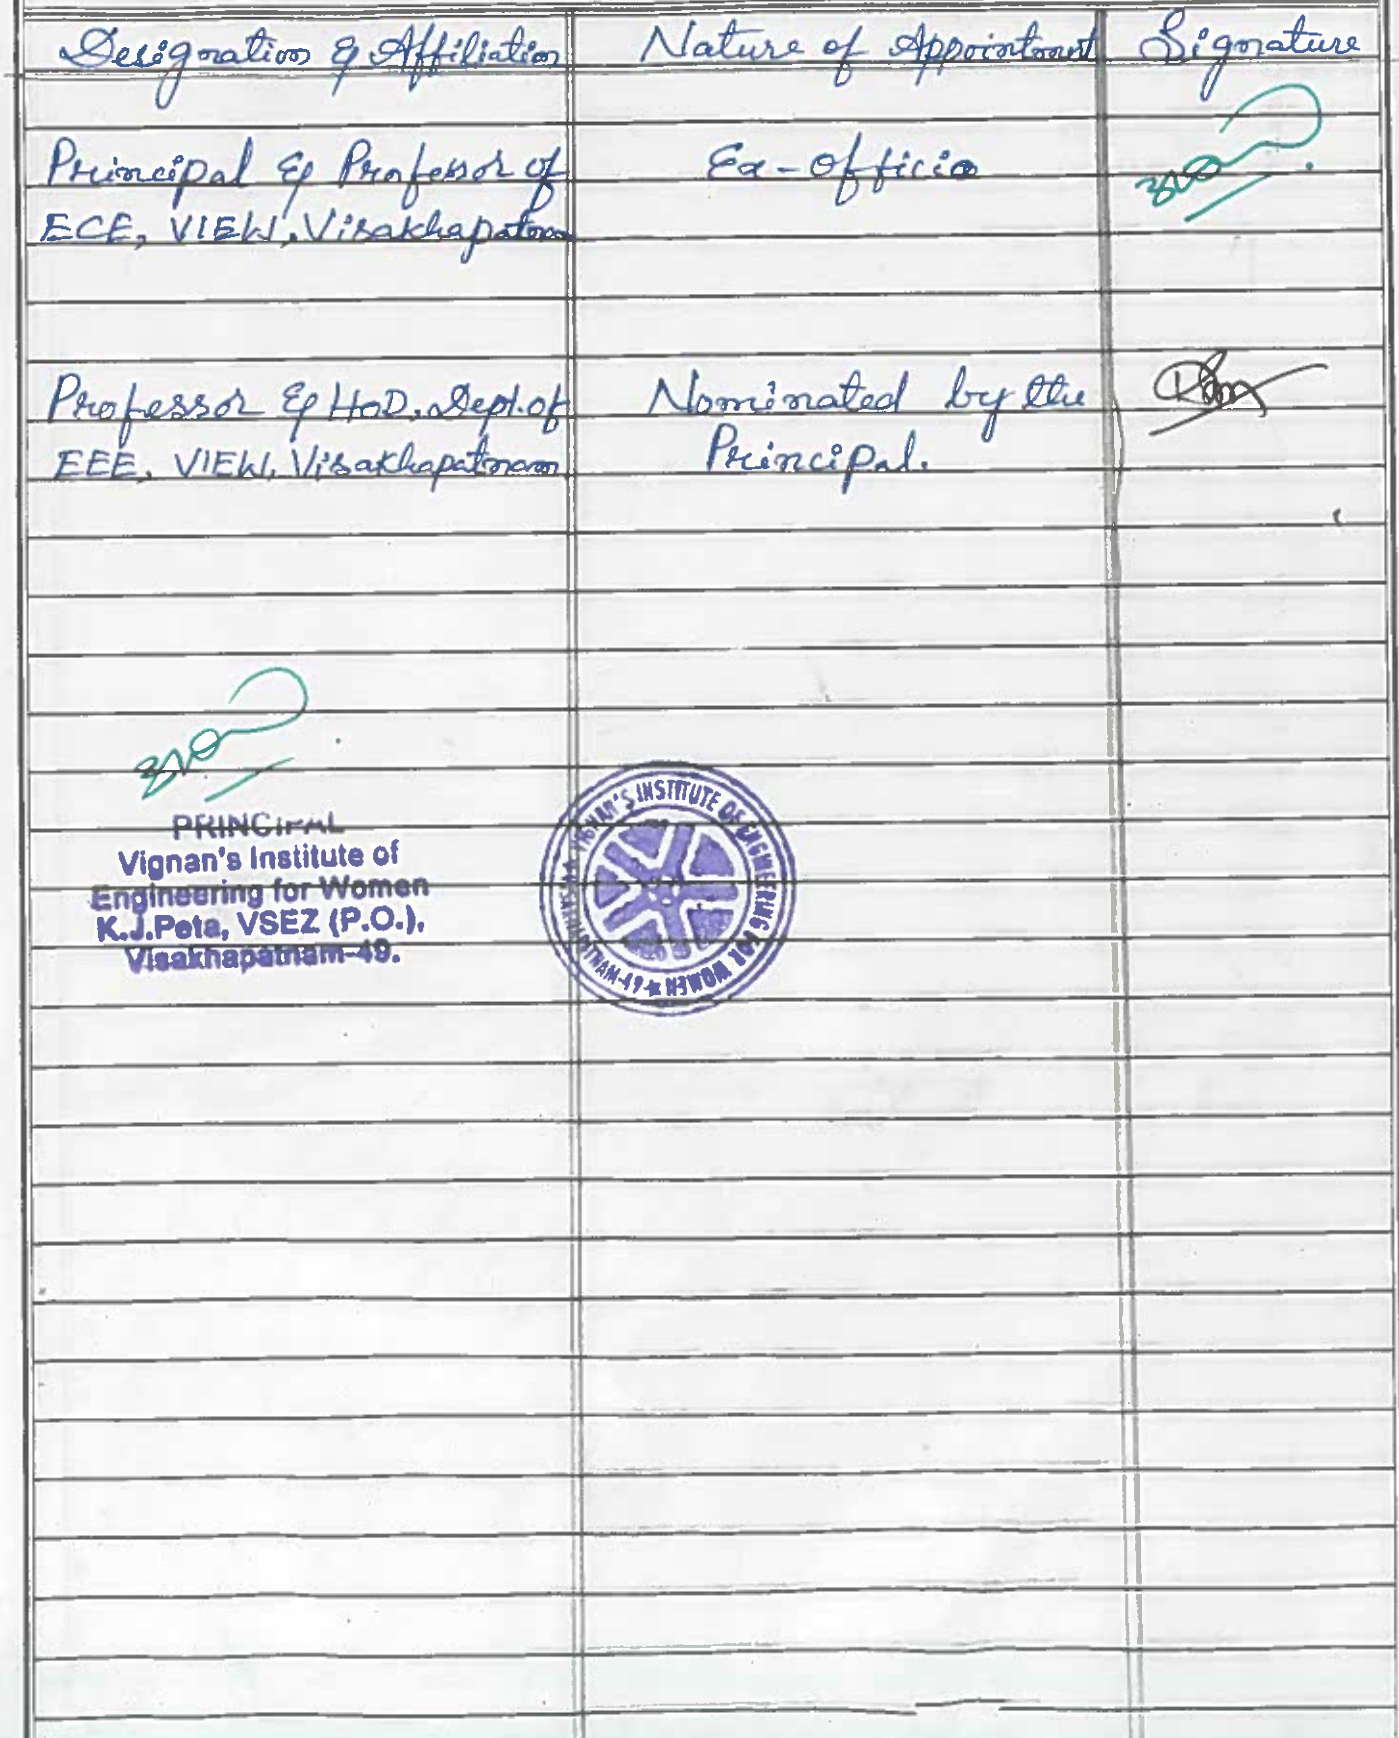 Designation & Affiliation Nature of Appointment Signature
Principal & Professor of Ex-Officio
ECE, VIEW, Visakhapatnam
Professor & HoD, Dept. of Nominated by the
EEE, VIEW, Visakhapatnam Principal.
PRINCIPAL
Vignan's Institute of
Engineering for Women
K.J.Peta, VSEZ (P.O.),
Visakhapatnam-49.
VIGNAN'S INSTITUTE OF ENGINEERING FOR WOMEN ★ VISAKHAPATNAM-49